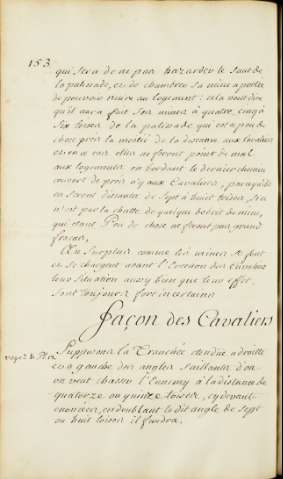 153
qui sera de ne pas hazarder le saut de
la palissade, et de chambrer sa mine a portée
de pouvoir nuire au logement: cela veut dire
qu'il aura fait ses mines à quatre, cinq à
six toises de la palissade qui est a peu de
chose près la moitié de la distance aux Cavaliers
en ce cas elles ne feront point de mal
aux logements en bordant le dernier chemin
couvert de près n'y aux Cavaliers, parcequ'ils
en seront distants de sept à huit toises, si ce
n'est par la chutte de quelque débris de mine,
qui étant peu de chose ne feront pas grand
fracas,
Au Surplus comme les mines se font
et se chargent avant l'
leur Situation aussy bien que leur effet
Sont toujours fort incertains
façon des Cavaliers
voyez la Pl.
Supposons la Tranchée étendue a droitte
et a gauche des angles saillants d'où
on veut chasser l'Ennemy à la distance de
quatorze ou quinze toises, cy devant
énoncées, en doublant le dit angle de sept
ou huit toises il faudra.